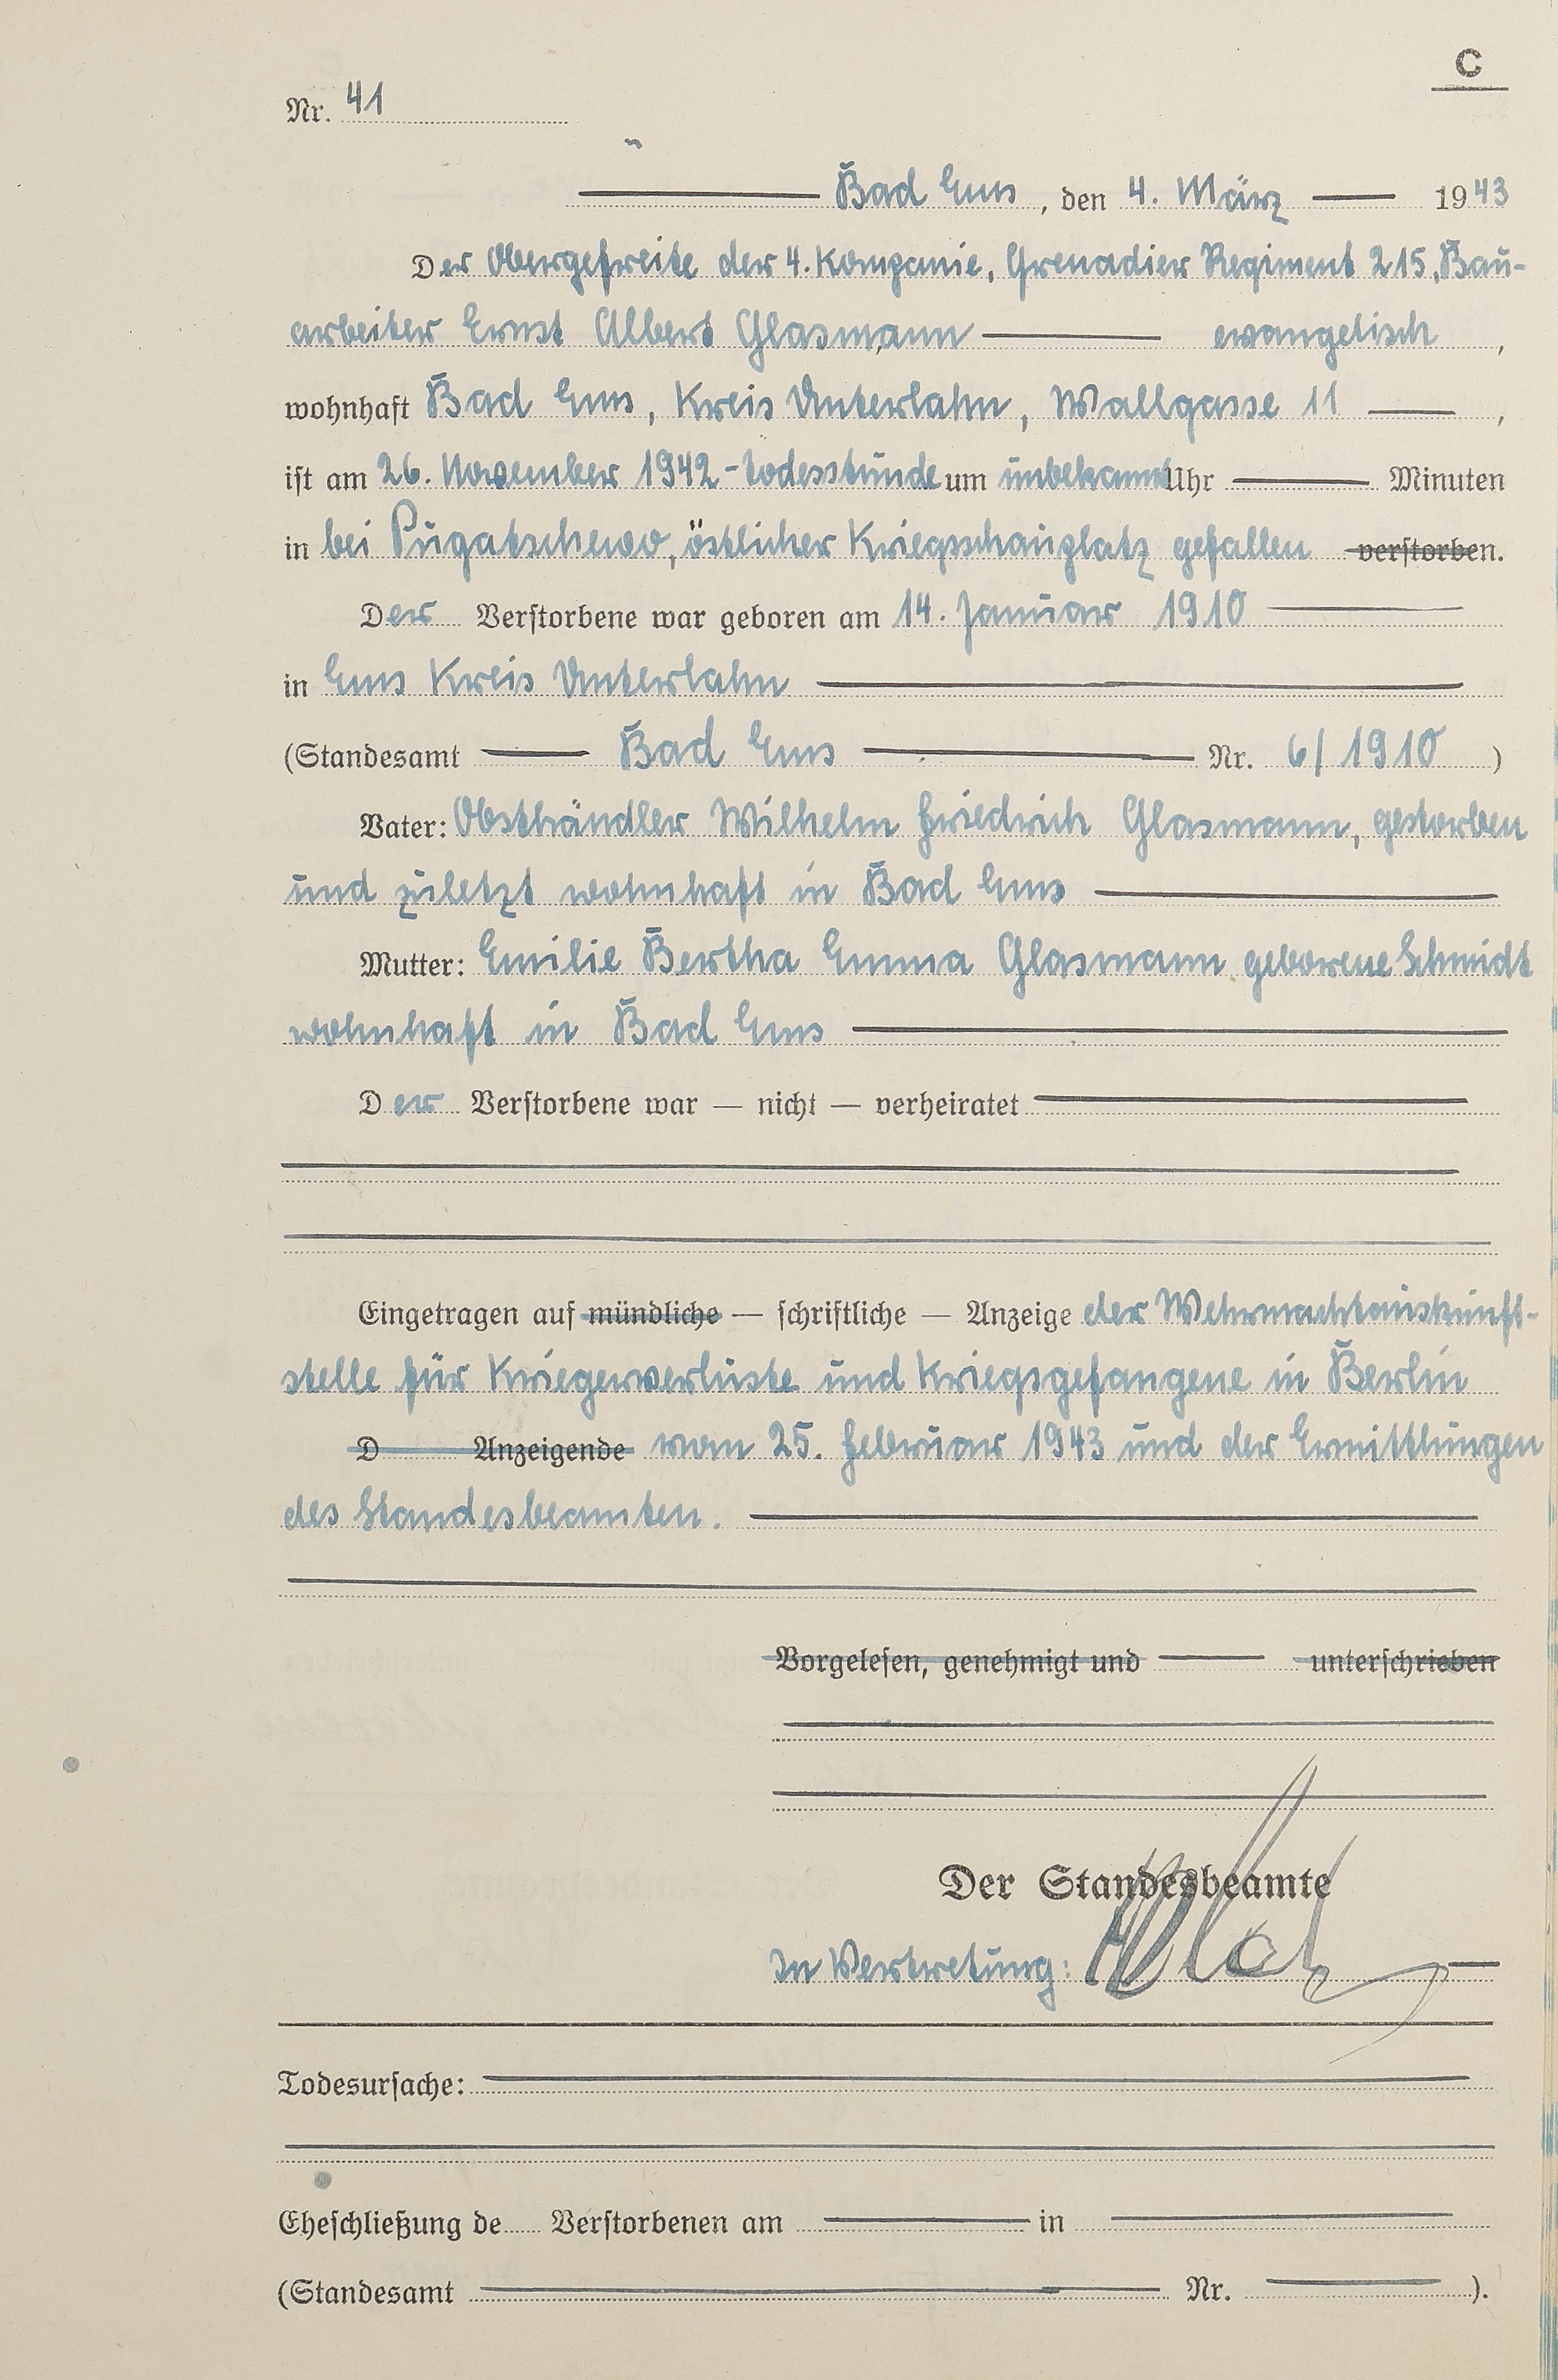 C
Nr. 41
Bad Ems, den 4. März 1943
Der Obergefreite der 4. Kompanie, Grenadier Regiment 215, Bau-
arbeiter Ernst Albert Glasmann evangelisch,
wohnhaft Bad Ems, Kreis Unterlahn, Wallgasse 11,
ist am 26. November 1942 - Todesstunde um unbekannt Uhr Minuten
in bei Pugatschewo, östlicher Kriegsschauplatz gefallen verstorben.
Der Verstorbene war geboren am 14. Januar 1910
in Ems Kreis Unterlahn
(Standesamt Bad Ems Nr. 6/1910)
Vater: Obsthändler Wilhelm Friedrich Glasmann, gestorben
und zuletzt wohnhaft in Bad Ems
Mutter: Emilie Bertha Emma Glasmann geborene Schmidt
wohnhaft in Bad Ems
Der Verstorbene war — nicht — verheiratet
Eingetragen auf mündliche — schriftliche — Anzeige der Wehrmachtauskunft-
stelle für Kriegerverluste und Kriegsgefangene in Berlin
D Anzeigende vom 25. Februar 1943 und der Ermittlungen
des Standesbeamten.
Vorgelesen, genehmigt und unterschrieben
Der Standesbeamte
In Vertretung:
Todesursache:
Eheschließung de Verstorbenen am in
(Standesamt Nr. ).